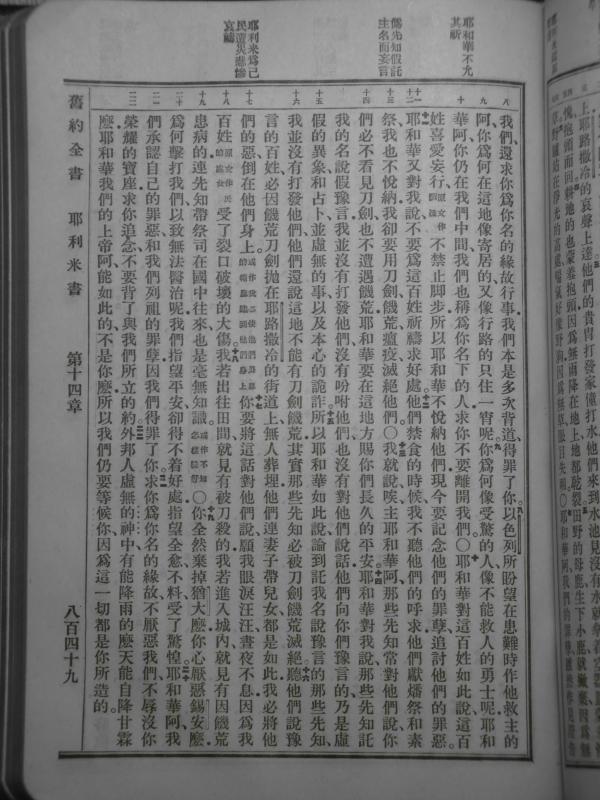 上耶路撒冷的哀聲上達他們的貴冑打發家僮打水他們來到水池見沒有水就
愧抱頭而回耕地的也蒙羞抱頭因爲無雨降在地上地都乾裂田野的母鹿生下小鹿就撇棄因爲無
耶和華不允
其祈
僞先知假託
主名而妄言
耶利米爲己
民遭災悲慘
哀禱
八 我們還求你爲你名的緣故行事我們本是多次背道得罪了你以色列所盼望在患難時作他救主的
九 阿你爲何在這地像寄居的又像行路的只住一宵呢你爲何像受驚的人像不能救人的勇士呢耶和
華阿你仍在我們中間我們也稱爲你名下的人求你不要離開我們〇耶和華對這百姓如此說這百
十 姓喜愛妄行原文作飄流不禁止脚步所以耶和華不悅納他們現今要記念他們的罪孽追討他們的罪惡
十一十二 耶和華又對我說不要爲這百姓祈禱求好處他們禁食的時候我不聽他們的呼求他們獻燔祭和素
十三 祭我也不悅納我卻要用刀劍饑荒瘟疫滅絕他們〇我就說唉主耶和華阿那些先知常對他們說你
十四 們必不看見刀劍也不遭遇饑荒耶和華要在這地方賜你們長久的平安耶和華對我說那些先知託
我的名說假豫言我並沒有打發他們沒有吩咐他們也沒有對他們說話他們向你們豫言的乃是虛
十五 假的異象和占卜並虛無的事以及本心的詭詐所以耶和華如此說論到託我名說豫言的那些先知
十六 我並沒有打發他們他們還說這地不能有刀劍饑荒其實那些先知必被刀劍饑荒滅絕聽他們說豫
言的百姓必因饑荒刀劍拋在耶路撒冷的街道上無人葬埋他們連妻子帶兒女都是如此我必將他
十七 們的惡倒在他們身上你要將這話對他們說願我眼淚汪汪晝夜不息因爲我
十八 百姓原文作民的處女受了裂口破壞的大傷我若出往田間就見有被刀殺的我若進入城內就見有因饑荒
十九 患病的連先知帶祭司在國中往來也是毫無知識〇你全然棄掉猶大麼你心厭惡錫安麼
二十 爲何擊打我們以致無法醫治呢我們指望平安卻得不着好處指望全愈不料受了驚惶耶和華阿我
二一 們承認自己的罪惡和我們列祖的罪孽因我們得罪了你求你爲你名的緣故不厭惡我們不辱沒你
二二 榮耀的寶座求你追念不要背了與我們所立的約外邦人虛無的神中有能降雨的麼天能自降甘霖
麼耶和華我們的上帝阿能如此的不是你麼所以我們仍要等候你因爲這一切都是你所造的
舊約全書 耶利米書 第十四章 八百四十九